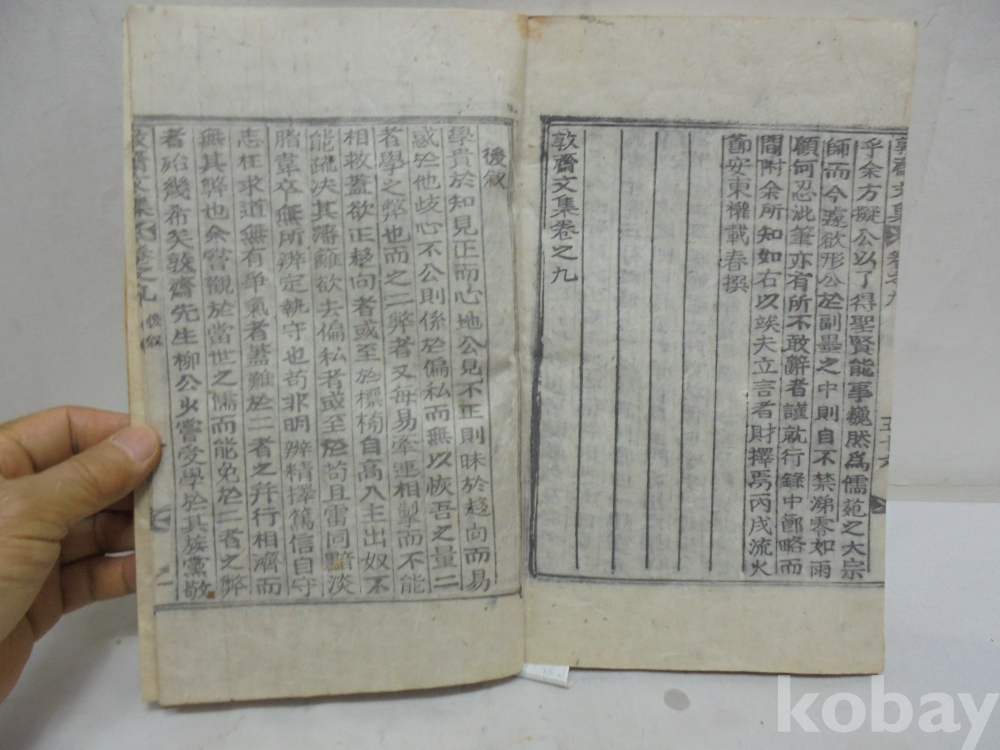 乎余方擬公以了得聖賢能事巍然爲儒苑之大宗
師而今遽欲形公於副墨之中則自不禁涕零如雨
顧何忍泚筆亦有所不敢辭者謹就行錄中節略而
間附余所知如右以竢夫立言者財擇焉丙戌流火
節安東權載春撰
敦齋文集卷之九
後敘
學貴於知見正而心地公見不正則昧於趍向而易
惑於他歧心不公則係於偏私而無以恢吾之量二
者學之弊也而之二弊者又每易牽連相掣而不能
相救蓋欲正趍向者或至於標榜自高入主出奴不
能疏決其藩籬欲去偏私者或至於苟且雷同黯淡
脂韋卒無所辨定執守也苟非明辨精擇篤信自守
志在求道無有爭氣者蓋難於二者之幷行相濟而
無其弊也余嘗觀於當世之儒而能免於二者之弊
者殆幾希矣敦齋先生柳公少嘗受學於其族黨敬
敦齋文集 卷之九 後敘
kobay